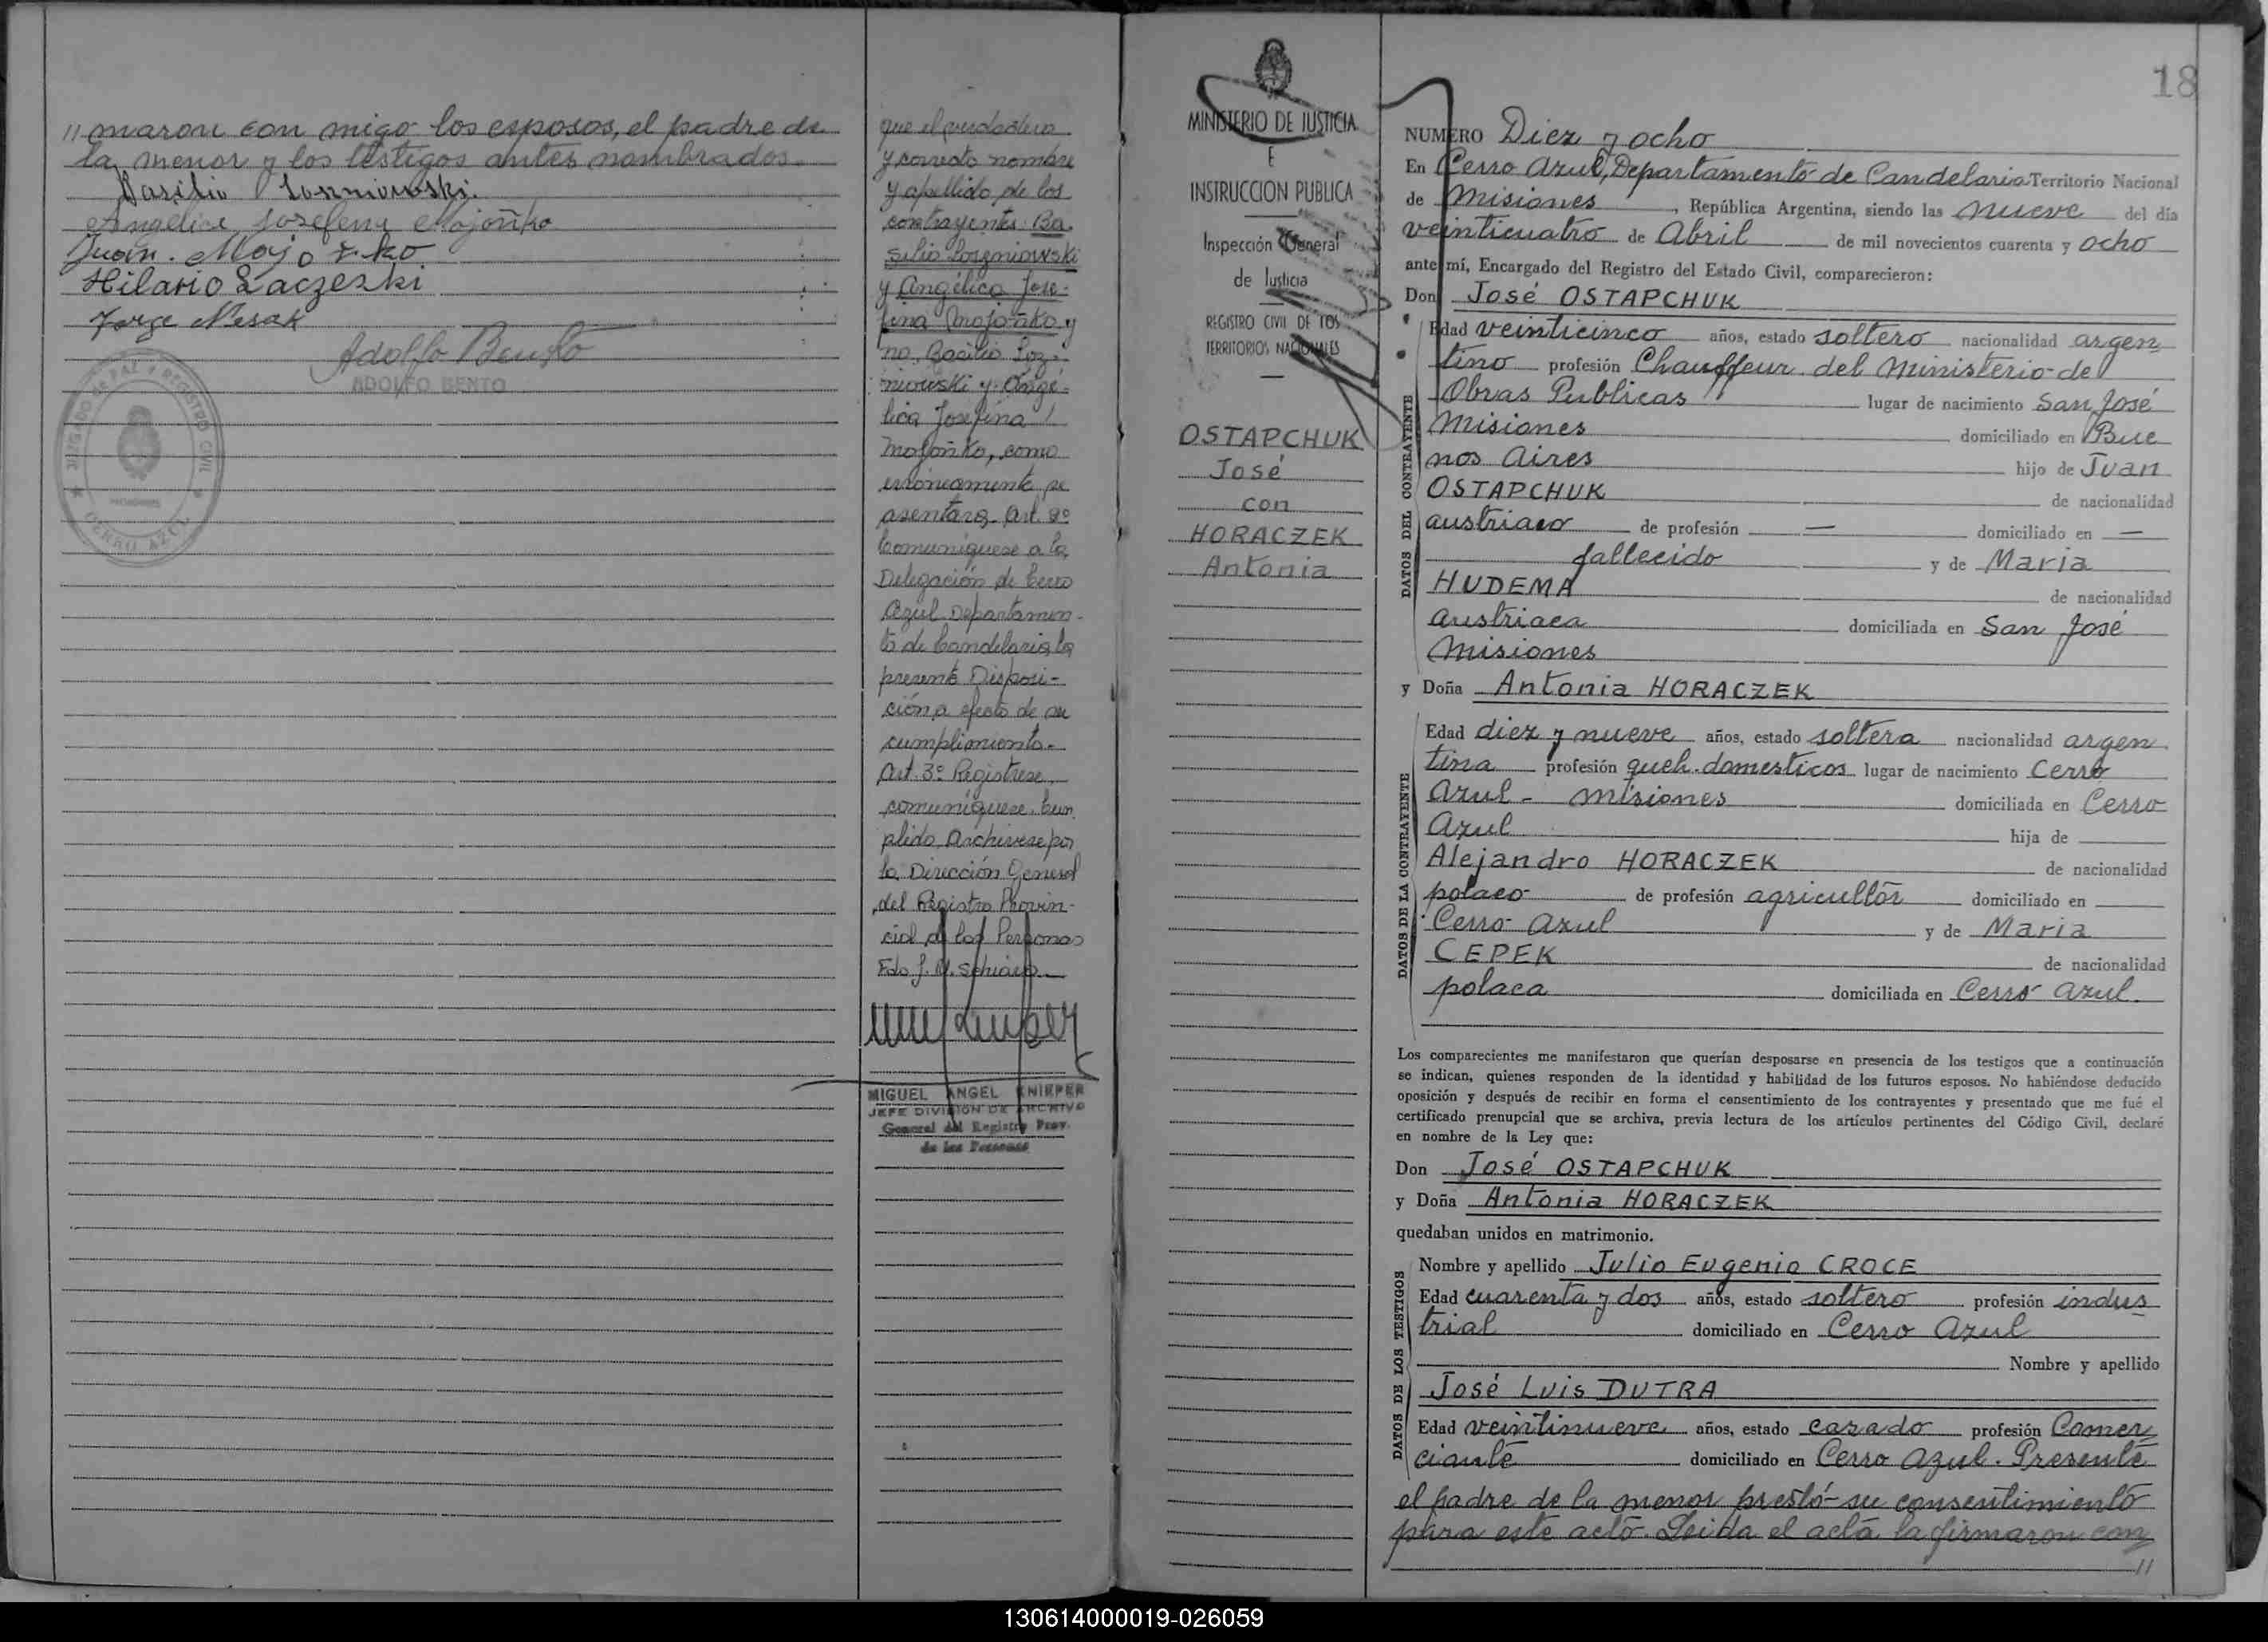 // maron con migo los esposos, el padre de
la menor y los testigos antes nombrados.
Basilio
Angélica Josefina Mojoñko
Juan. Mojoñko
Hilario Laczeski
Jorge Nesak
Adolfo Bento
ADOLFO BENTO
JUZGADO DE PAZ Y REGISTRO CIVIL
CERRO AZUL
que el verdadero
y correcto nombre
y apellido de los
contrayentes Ba
silio Lozniowski
y Angélica Jose-
fina Mojoñko y
no, Basilio Loz-
niowski y Angé-
lica Josefina
Mojoñko, como
erróneamente se
asentara. Art. 2º
Comuníquese a la
Delegación de Cerro
Azul Departamen-
to de Candelaria la
presente Disposi-
ción a efecto de su
cumplimiento.
Art. 3º Regístrese,
comuníquese. Cum
plido, Archívese por
la Dirección General
del Registro Provin-
cial de las Personas
Fdo J.
MIGUEL ANGEL KNIEPER
JEFE DIVISION DE ARCHIVO
General del Registro Prov.
de las Personas
MINISTERIO DE JUSTICIA
E
INSTRUCCION PUBLICA
Inspección General
de Justicia
REGISTRO CIVIL DE LOS
TERRITORIOS NACIONALES
OSTAPCHUK
José
con
HORACZEK
Antonia
18
NUMERO Diez y ocho
En Cerro Azul, Departamento de Candelaria Territorio Nacional
de Misiones, República Argentina, siendo las nueve del día
veinticuatro de Abril de mil novecientos cuarenta y ocho
ante mí, Encargado del Registro del Estado Civil, comparecieron:
Don José OSTAPCHUK
DATOS DEL CONTRAYENTE
Edad veinticinco años, estado soltero nacionalidad argen
tino profesión Chauffeur del Ministerio de
Obras Publicas lugar de nacimiento San José
Misiones domiciliado en Bue
nos Aires hijo de Juan
OSTAPCHUK de nacionalidad
austriaco de profesión — domiciliado en —
fallecido y de Maria
HUDEMA de nacionalidad
austriaca domiciliada en San José
Misiones
y Doña Antonia HORACZEK
DATOS DE LA CONTRAYENTE
Edad diez y nueve años, estado soltera nacionalidad argen
tina profesión queh. domesticos lugar de nacimiento Cerro
Azul - Misiones domiciliada en Cerro
Azul hija de
Alejandro HORACZEK de nacionalidad
polaco de profesión agricultor domiciliado en
Cerro Azul y de Maria
CEPEK de nacionalidad
polaca domiciliada en Cerro Azul.
Los comparecientes me manifestaron que querían desposarse en presencia de los testigos que a continuación
se indican, quienes responden de la identidad y habilidad de los futuros esposos. No habiéndose deducido
oposición y después de recibir en forma el consentimiento de los contrayentes y presentado que me fué el
certificado prenupcial que se archiva, previa lectura de los artículos pertinentes del Código Civil, declaré
en nombre de la Ley que:
Don José OSTAPCHUK
y Doña Antonia HORACZEK
quedaban unidos en matrimonio.
DATOS DE LOS TESTIGOS
Nombre y apellido Julio Eugenio CROCE
Edad cuarenta y dos años, estado soltero profesión indus
trial domiciliado en Cerro Azul
Nombre y apellido
José Luis DUTRA
Edad veintinueve años, estado casado profesión Comer
ciante domiciliado en Cerro Azul. Presente
el padre de la menor prestó su consentimiento
para este acto. Leida el acta la firmaron con
//
130614000019-026059